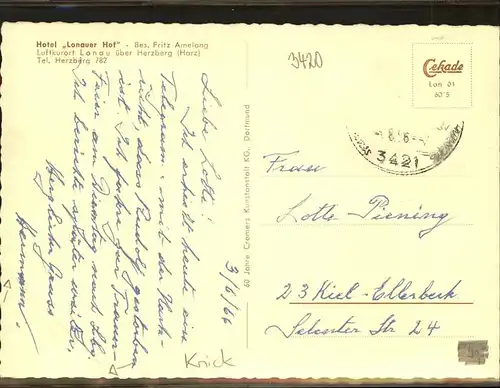 Hotel „Lonauer Hof" - Bes. Fritz Amelang
Luftkurort Lonau über Herzberg (Harz)
Tel. Herzberg 782
3420
Cekade
Lon 01
60 5
3421
3/6/66
Liebe Lotte!
Ich erhielt heute ein
Telegramm mit der Nach-
richt, dass Rudolf gestorben
ist. Ich fahre zur Trauer-
feier am Dienstag nach
Ich berichte später weiter.
Herzlichen Gruss
Hermann.
60 Jahre Cramers Kunstanstalt KG., Dortmund
Frau
Lotte Piening
23 Kiel-Ellerbeck
Selenter Str 24
Krick